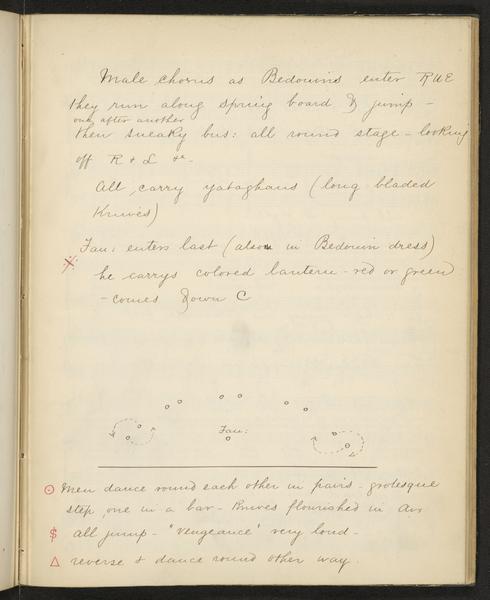 Male chorus as Bedouins enter R U E
they run along spring board & jump -
one after another
then sneaky bus: all round stage - looking
off R & L &c -
All carry yataghans (long bladed
Knives)
Fau: enters last (also in Bedouin dress)
he carrys colored lantern - red or green
- comes down C
Fau:
Men dance round each other in pairs - grotesque
step, one in a bar - Knives flourished in air
$ all jump - "Vengeance" very loud -
△ reverse & dance round other way.